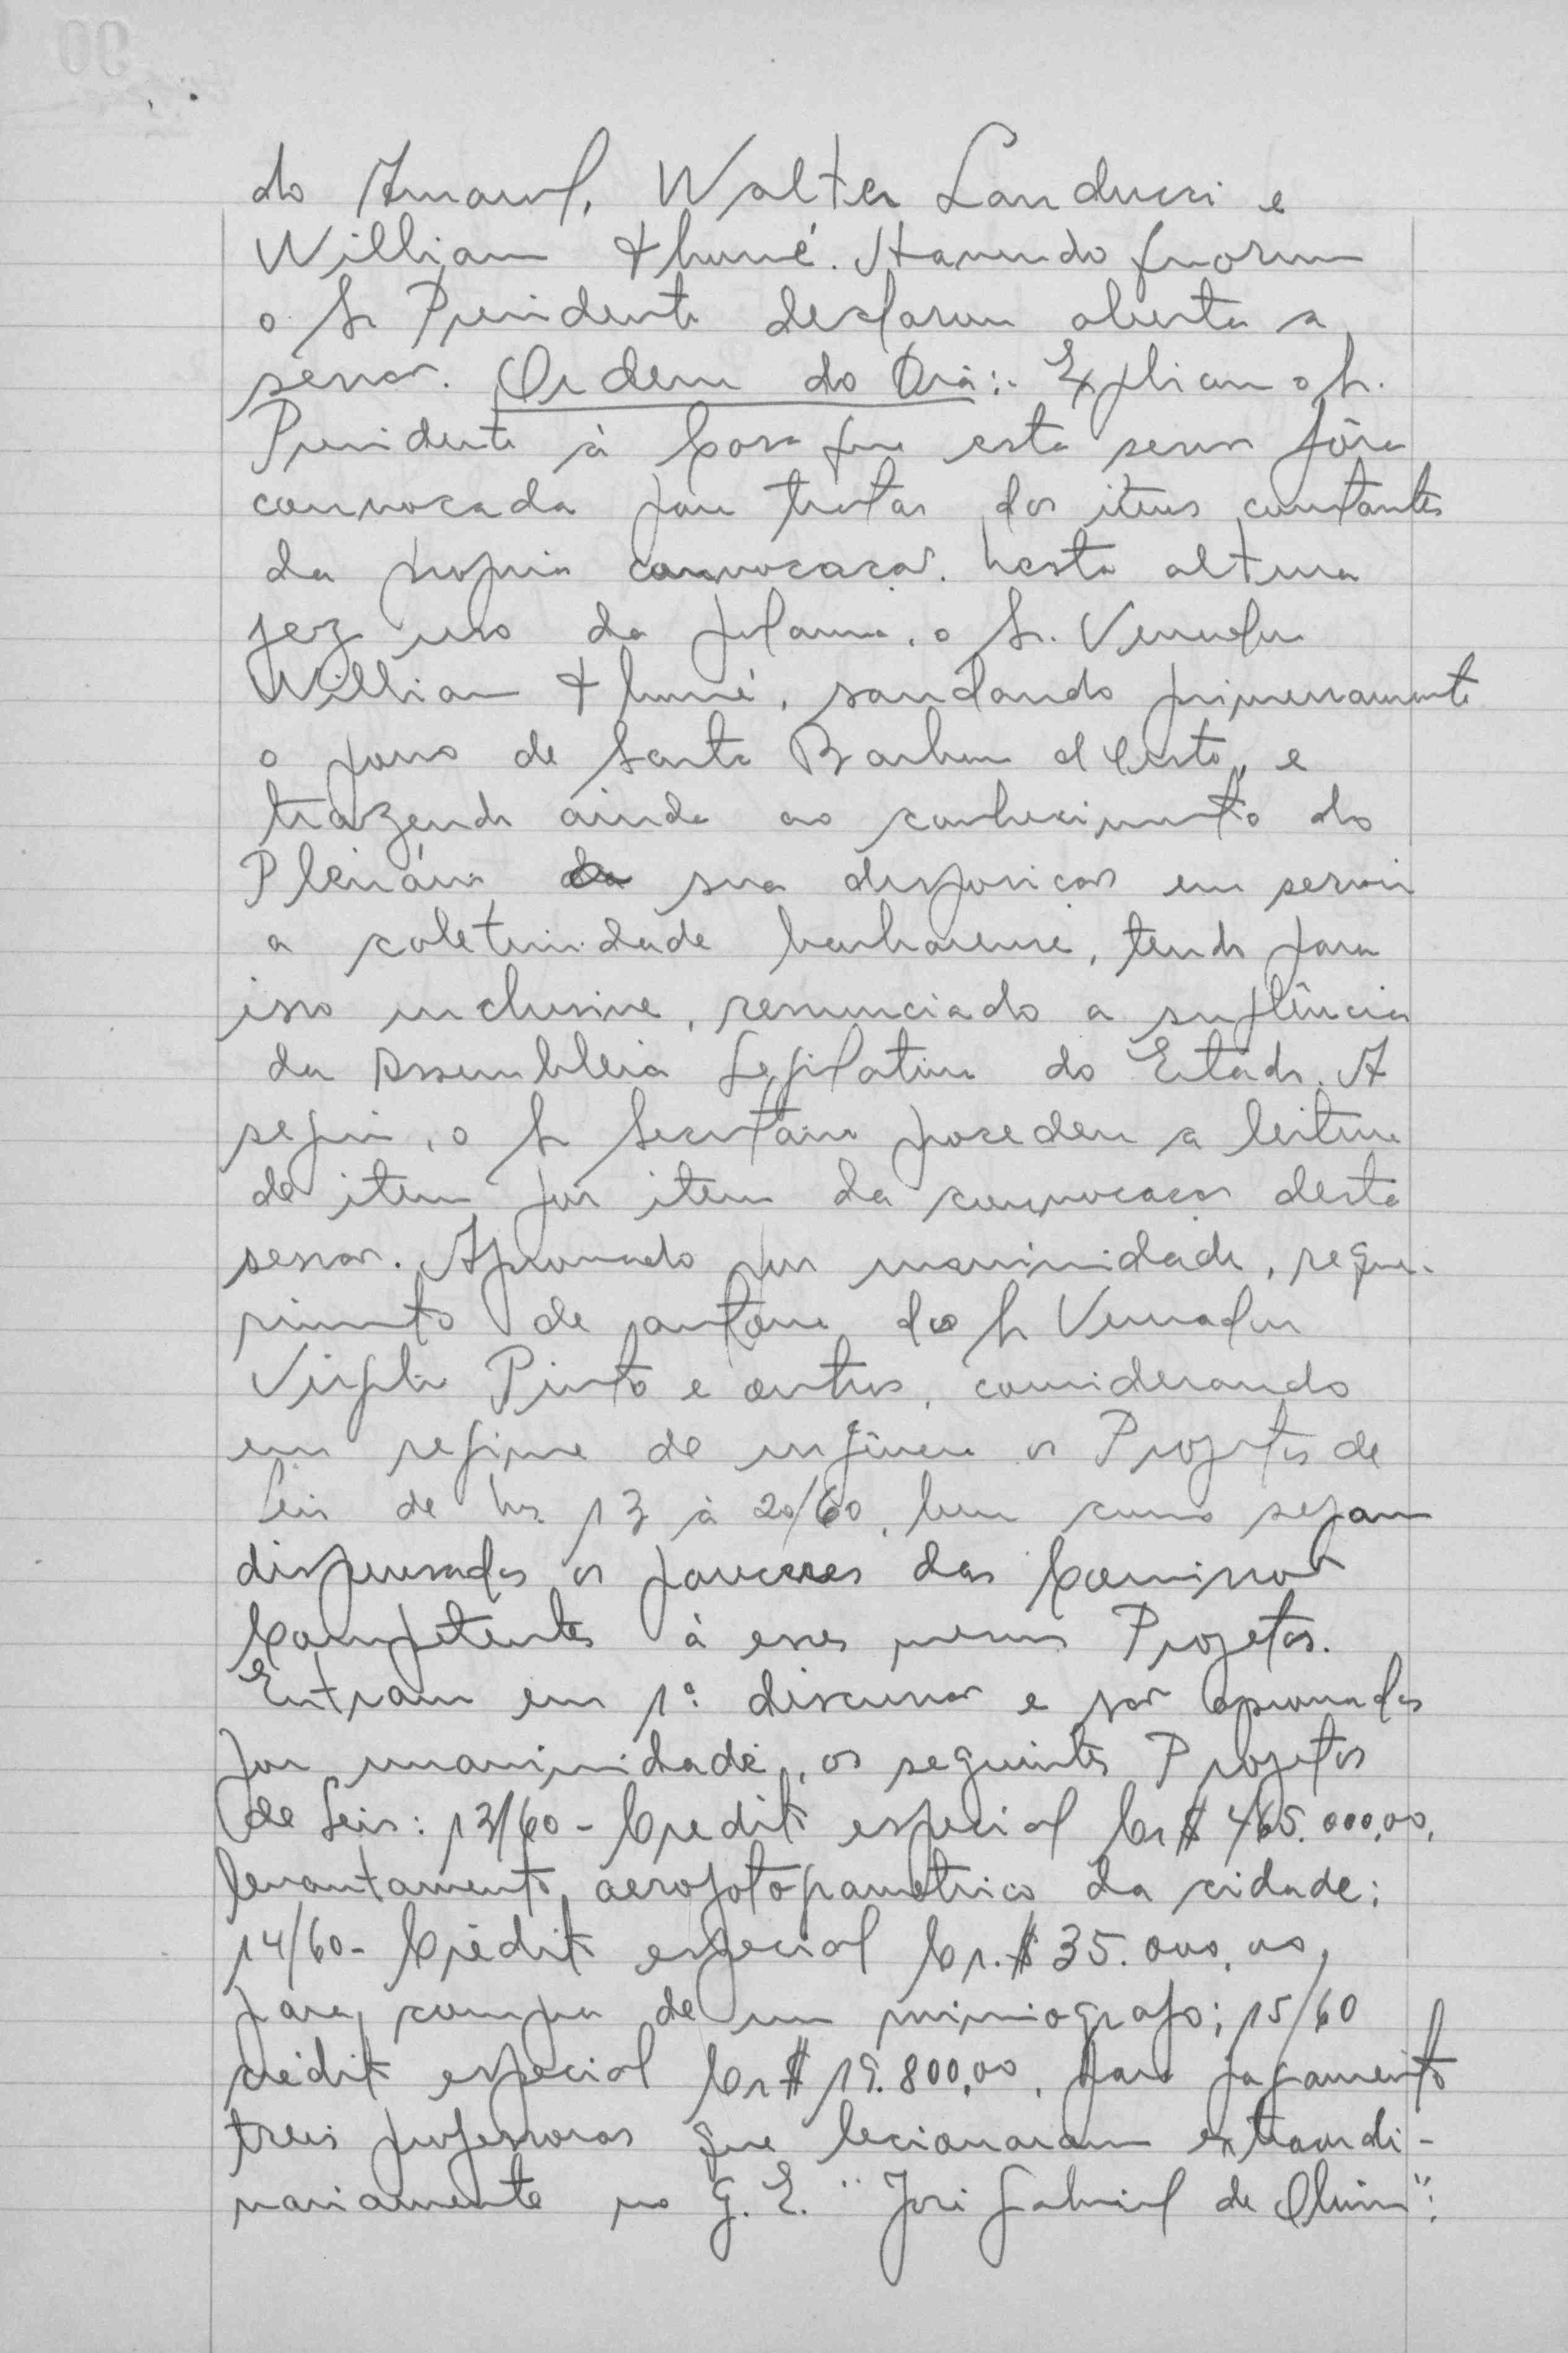 do Amaral, Walter Landucci e
William Thumé. Havendo quorum
o Sr Presidente declarou aberta a
sessão. Ordem do Dia:- Explicou o Sr.
Presidente à Casa que esta sessão fôra
convocada para tratar dos itens constantes
da propria convocação. Nesta altura
fez uso da palavra, o Sr. Vereador
William Thumé, saudando primeiramente
o povo de Santa Barbara d'Oeste, e
trazendo ainda ao conhecimento do
Plenário da sua disposição em servir
a coletividade barbarense, tendo para
isso inclusive, renunciado a suplência
da Assembleia Legislativa do Estado. A
seguir, o Sr Secretário procedeu a leitura
de item por item da convocação desta
sessão. Aprovado por unanimidade, reque-
rimento de autoria do Sr Vereador
Virgilio Pinto e outros, considerando
em regime de urgência os Projetos de
Leis de Nrs. 13 à 20/60, bem como sejam
dispensados os pareceres das Comissão
Competentes à esses mesmos Projetos.
Entram em 1ª discussão e são aprovados
por unanimidade, os seguintes Projetos
de Leis: 13/60 - Credito especial Cr$ 465.000,00,
levantamento aerofotogrametrico da cidade;
14/60 - Crédito especial Cr.$ 35.000,00,
para compra de um mimiografo; 15/60
crédito especial Cr$ 19.800,00, para pagamento
treis professoras que lecionaram extraordi-
nariamente no G.E. "José Gabriel de Oliveira";